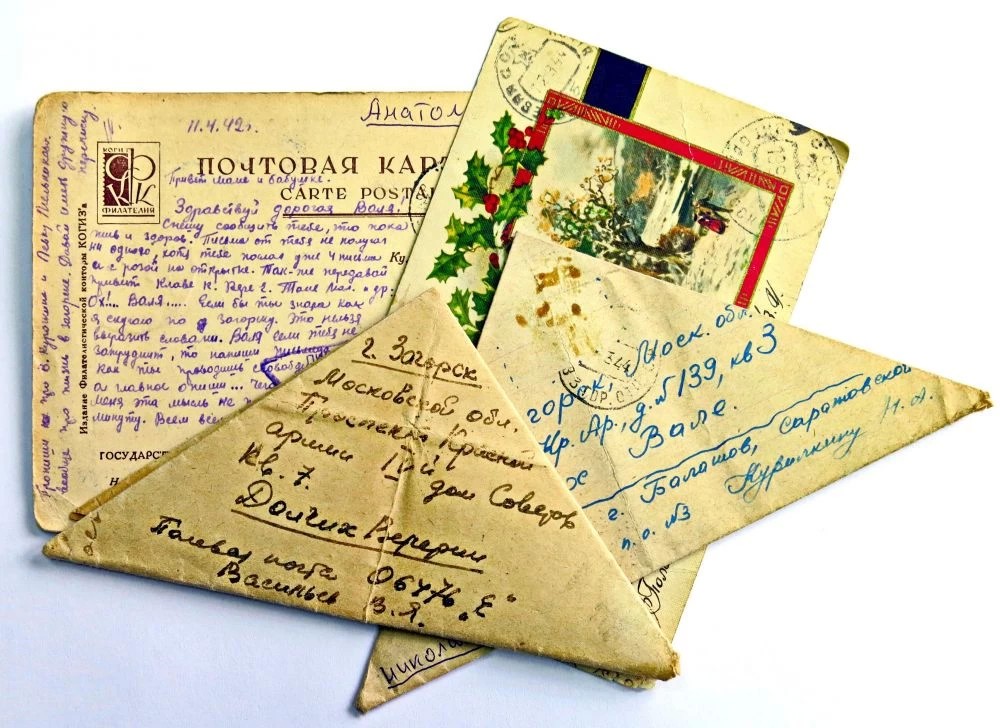 Анатол
11.4.42г.
КОГИЗ
ФИЛАТЕЛИЯ
ПОЧТОВАЯ КАР
CARTE POSTA
Привет маме и бабушке.
Здравствуй дорогая Валя!
Спешу сообщить тебе, что пока
жив и здоров. Письма от тебя не получал
ни одного, хотя тебе послал уже 4 письма
и с розой на открытке. Так-же передавай
привет Клаве К. Вере г. Тане и др.
Ох!... Валя..... Если бы ты знала как
я скучаю по Загорску. Это нельзя
выразить словами. Валя если тебя не
затруднит, то напиши
как ты проводишь свободн
а главное о ним... чег
меня эта мысль не п
минуту. Всем все
Ку
ГОСУДАРСТ
Издание Филателистической конторы КОГИЗ'а
Пропиши про В. Курочкине и Леву
вообще про жизнь в Загорске. Давай имет дружную
переписку.
г. Загорск
Московской обл.
Проспект Красной
армии 1ый дом Советов
Кв. 7.
Долгих Валерии
Полевая почта 06476 "Е"
Васильев В.Я.
Моск. обл.
гор
Кр. Ар., д. №139, кв 3
Вале.
г. Балашов, саратовской
п. о. №3 Курилкину Н. А.
Никола